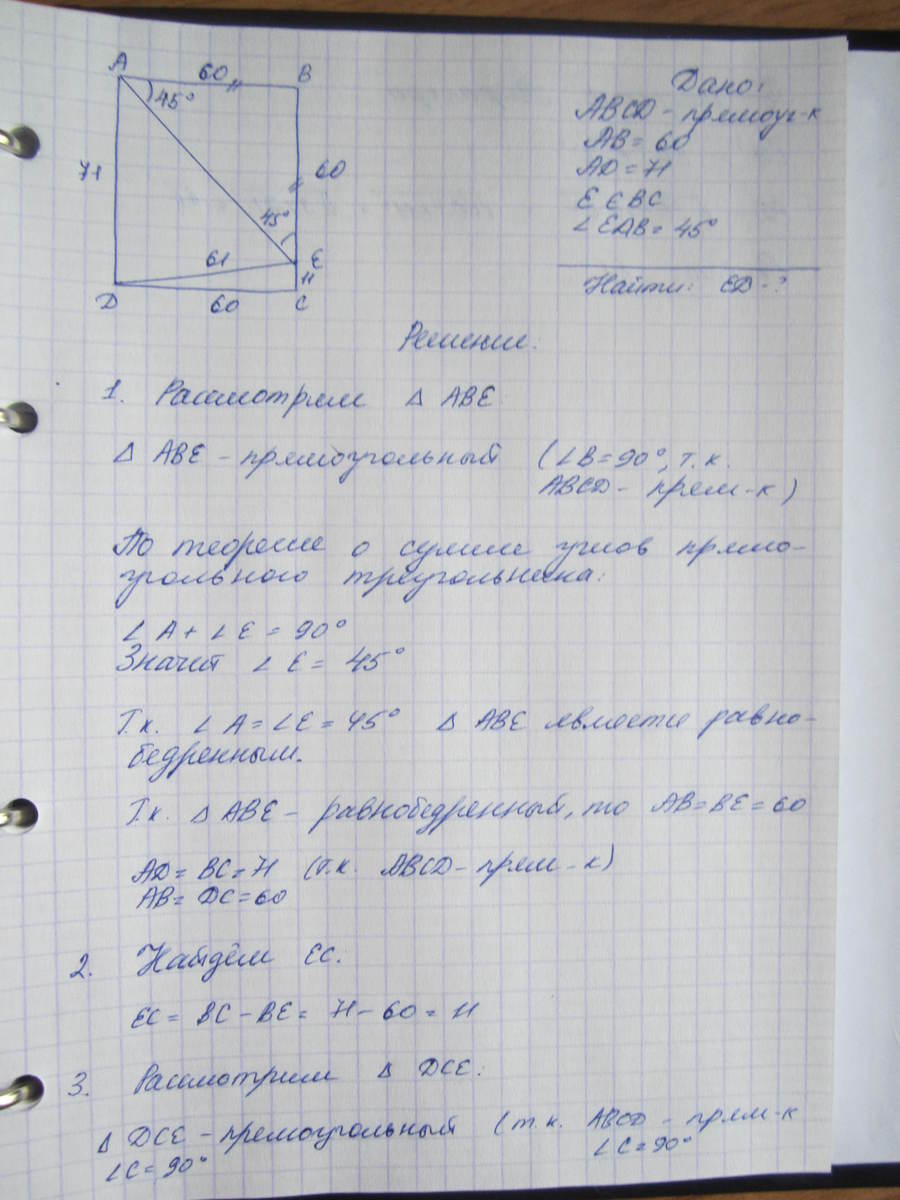 A
60
B
45°
71
60
45°
61
E
11
D
60
C
Дано:
ABCD - прямоуг-к
AB = 60
AD = 71
E ∈ BC
∠EAB = 45°
Найти: ED - ?
Решение.
1. Рассмотрим △ ABE
△ ABE - прямоугольный (∠B = 90°, т.к.
ABCD - прям-к)
По теореме о сумме углов прямо-
угольного треугольника:
∠ A + ∠ E = 90°
Значит ∠ E = 45°
Т.к. ∠ A = ∠ E = 45° △ ABE является равно-
бедренным.
Т.к. △ ABE - равнобедренный, то AB = BE = 60
AD = BC = 71 (т.к. ABCD - прям-к)
AB = DC = 60
2. Найдём EC.
EC = BC - BE = 71 - 60 = 11
3. Рассмотрим △ DCE:
△ DCE - прямоугольный (т.к. ABCD - прям-к
∠C = 90° ∠C = 90°